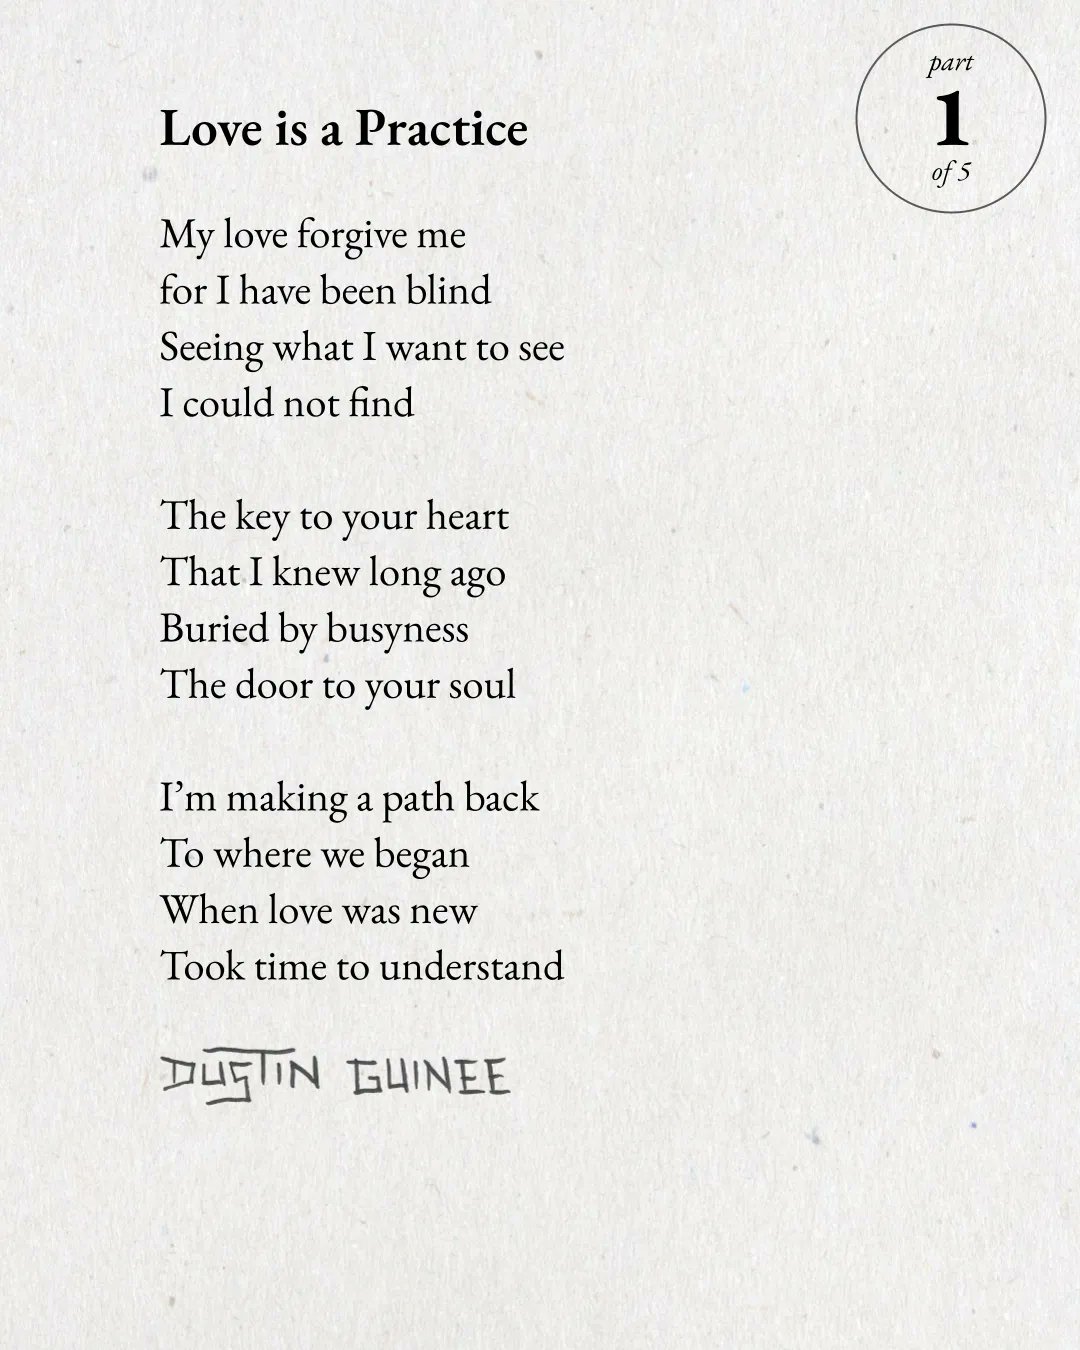 part
1
of 5
Love is a Practice
My love forgive me
for I have been blind
Seeing what I want to see
I could not find
The key to your heart
That I knew long ago
Buried by busyness
The door to your soul
I’m making a path back
To where we began
When love was new
Took time to understand
DUSTIN GUINEE